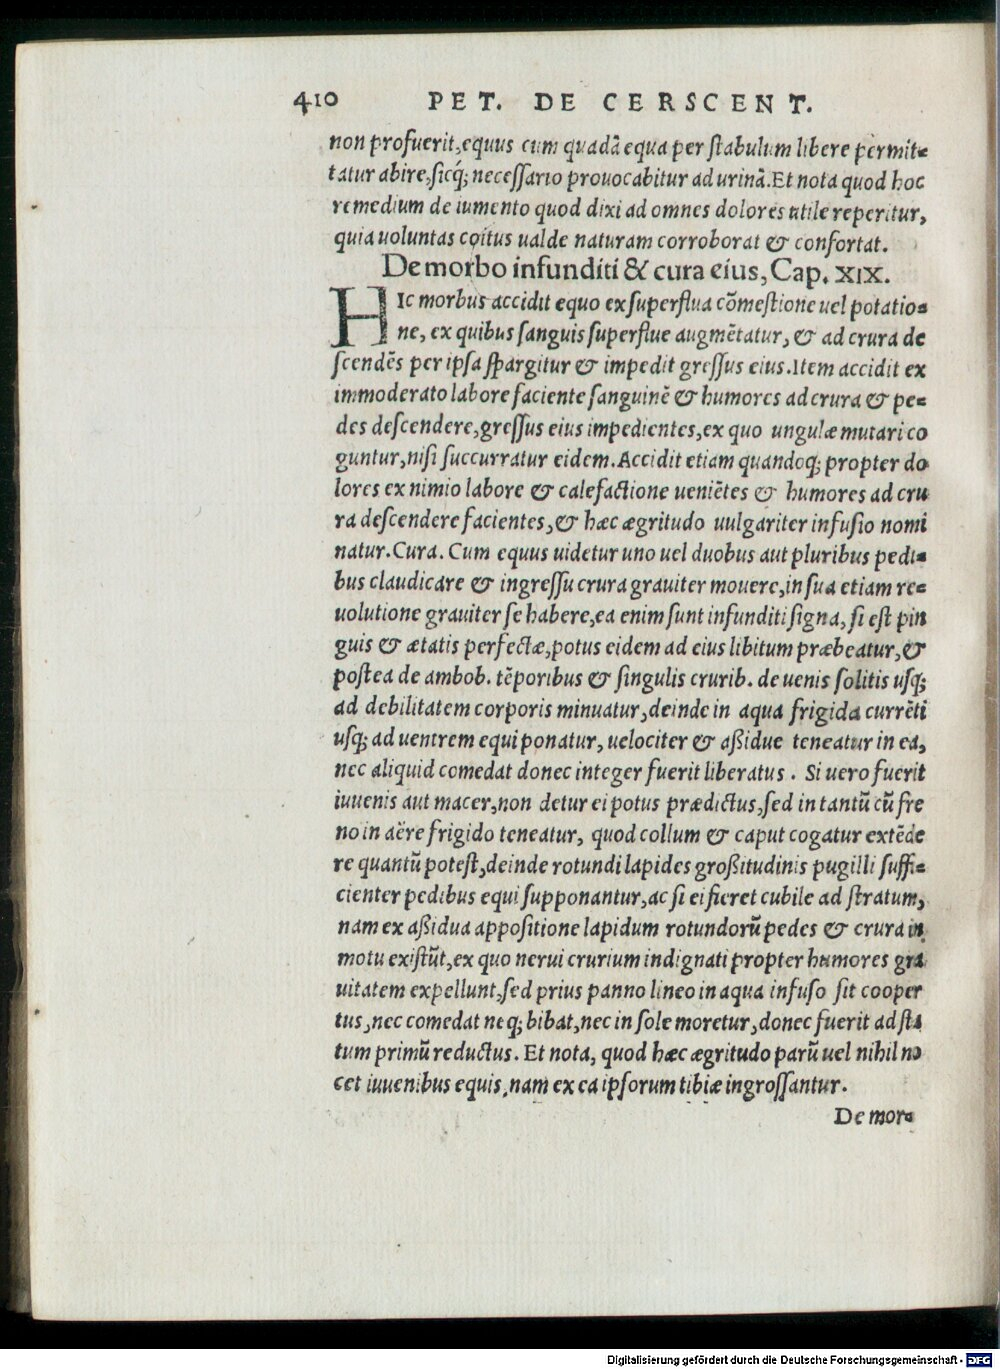 410 PET. DE CERSCENT.
non profuerit, equus cum quadā equa per stabulum libere permit-
tatur abire, sicq́; necessario prouocabitur ad urinā. Et nota quod hoc
remedium de iumento quod dixi ad omnes dolores utile reperitur,
quia uoluntas coitus ualde naturam corroborat & confortat.
De morbo infunditi & cura eius, Cap. XIX.
HIc morbus accidit equo ex superflua cōmestione uel potatio-
ne, ex quibus sanguis superflue augmētatur, & ad crura de
scendēs per ipsa spargitur & impedit gressus eius. Item accidit ex
immoderato labore faciente sanguinē & humores ad crura & pe-
des descendere, gressus eius impedientes, ex quo ungulæ mutari co
guntur, nisi succurratur eidem. Accidit etiam quandoq; propter do
lores ex nimio labore & calefactione ueniētes & humores ad cru
ra descendere facientes, & hæc ægritudo uulgariter infusio nomi
natur. Cura. Cum equus uidetur uno uel duobus aut pluribus pedi-
bus claudicare & ingressu crura grauiter mouere, in sua etiam re-
uolutione grauiter se habere, ea enim sunt infunditi signa, si est pin
guis & ætatis perfectæ, potus eidem ad eius libitum præbeatur, &
postea de ambob. tēporibus & singulis crurib. de uenis solitis usq;
ad debilitatem corporis minuatur, deinde in aqua frigida currēti
usq; ad uentrem equi ponatur, uelociter & aßidue teneatur in ea,
nec aliquid comedat donec integer fuerit liberatus. Si uero fuerit
iuuenis aut macer, non detur ei potus prædictus, sed in tantū cū fre
no in aëre frigido teneatur, quod collum & caput cogatur extēde
re quantū potest, deinde rotundi lapides großitudinis pugilli suffi-
cienter pedibus equi supponantur, ac si ei fieret cubile ad stratum,
nam ex aßidua appositione lapidum rotundorū pedes & crura in
motu existūt, ex quo nerui crurium indignati propter humores gra
uitatem expellunt, sed prius panno lineo in aqua infuso sit cooper
tus, nec comedat neq; bibat, nec in sole moretur, donec fuerit ad sta
tum primū reductus. Et nota, quod hæc ægritudo parū uel nihil no
cet iuuenibus equis, nam ex ea ipsorum tibiæ ingrossantur.
De mor-
Digitalisierung gefördert durch die Deutsche Forschungsgemeinschaft - DFG